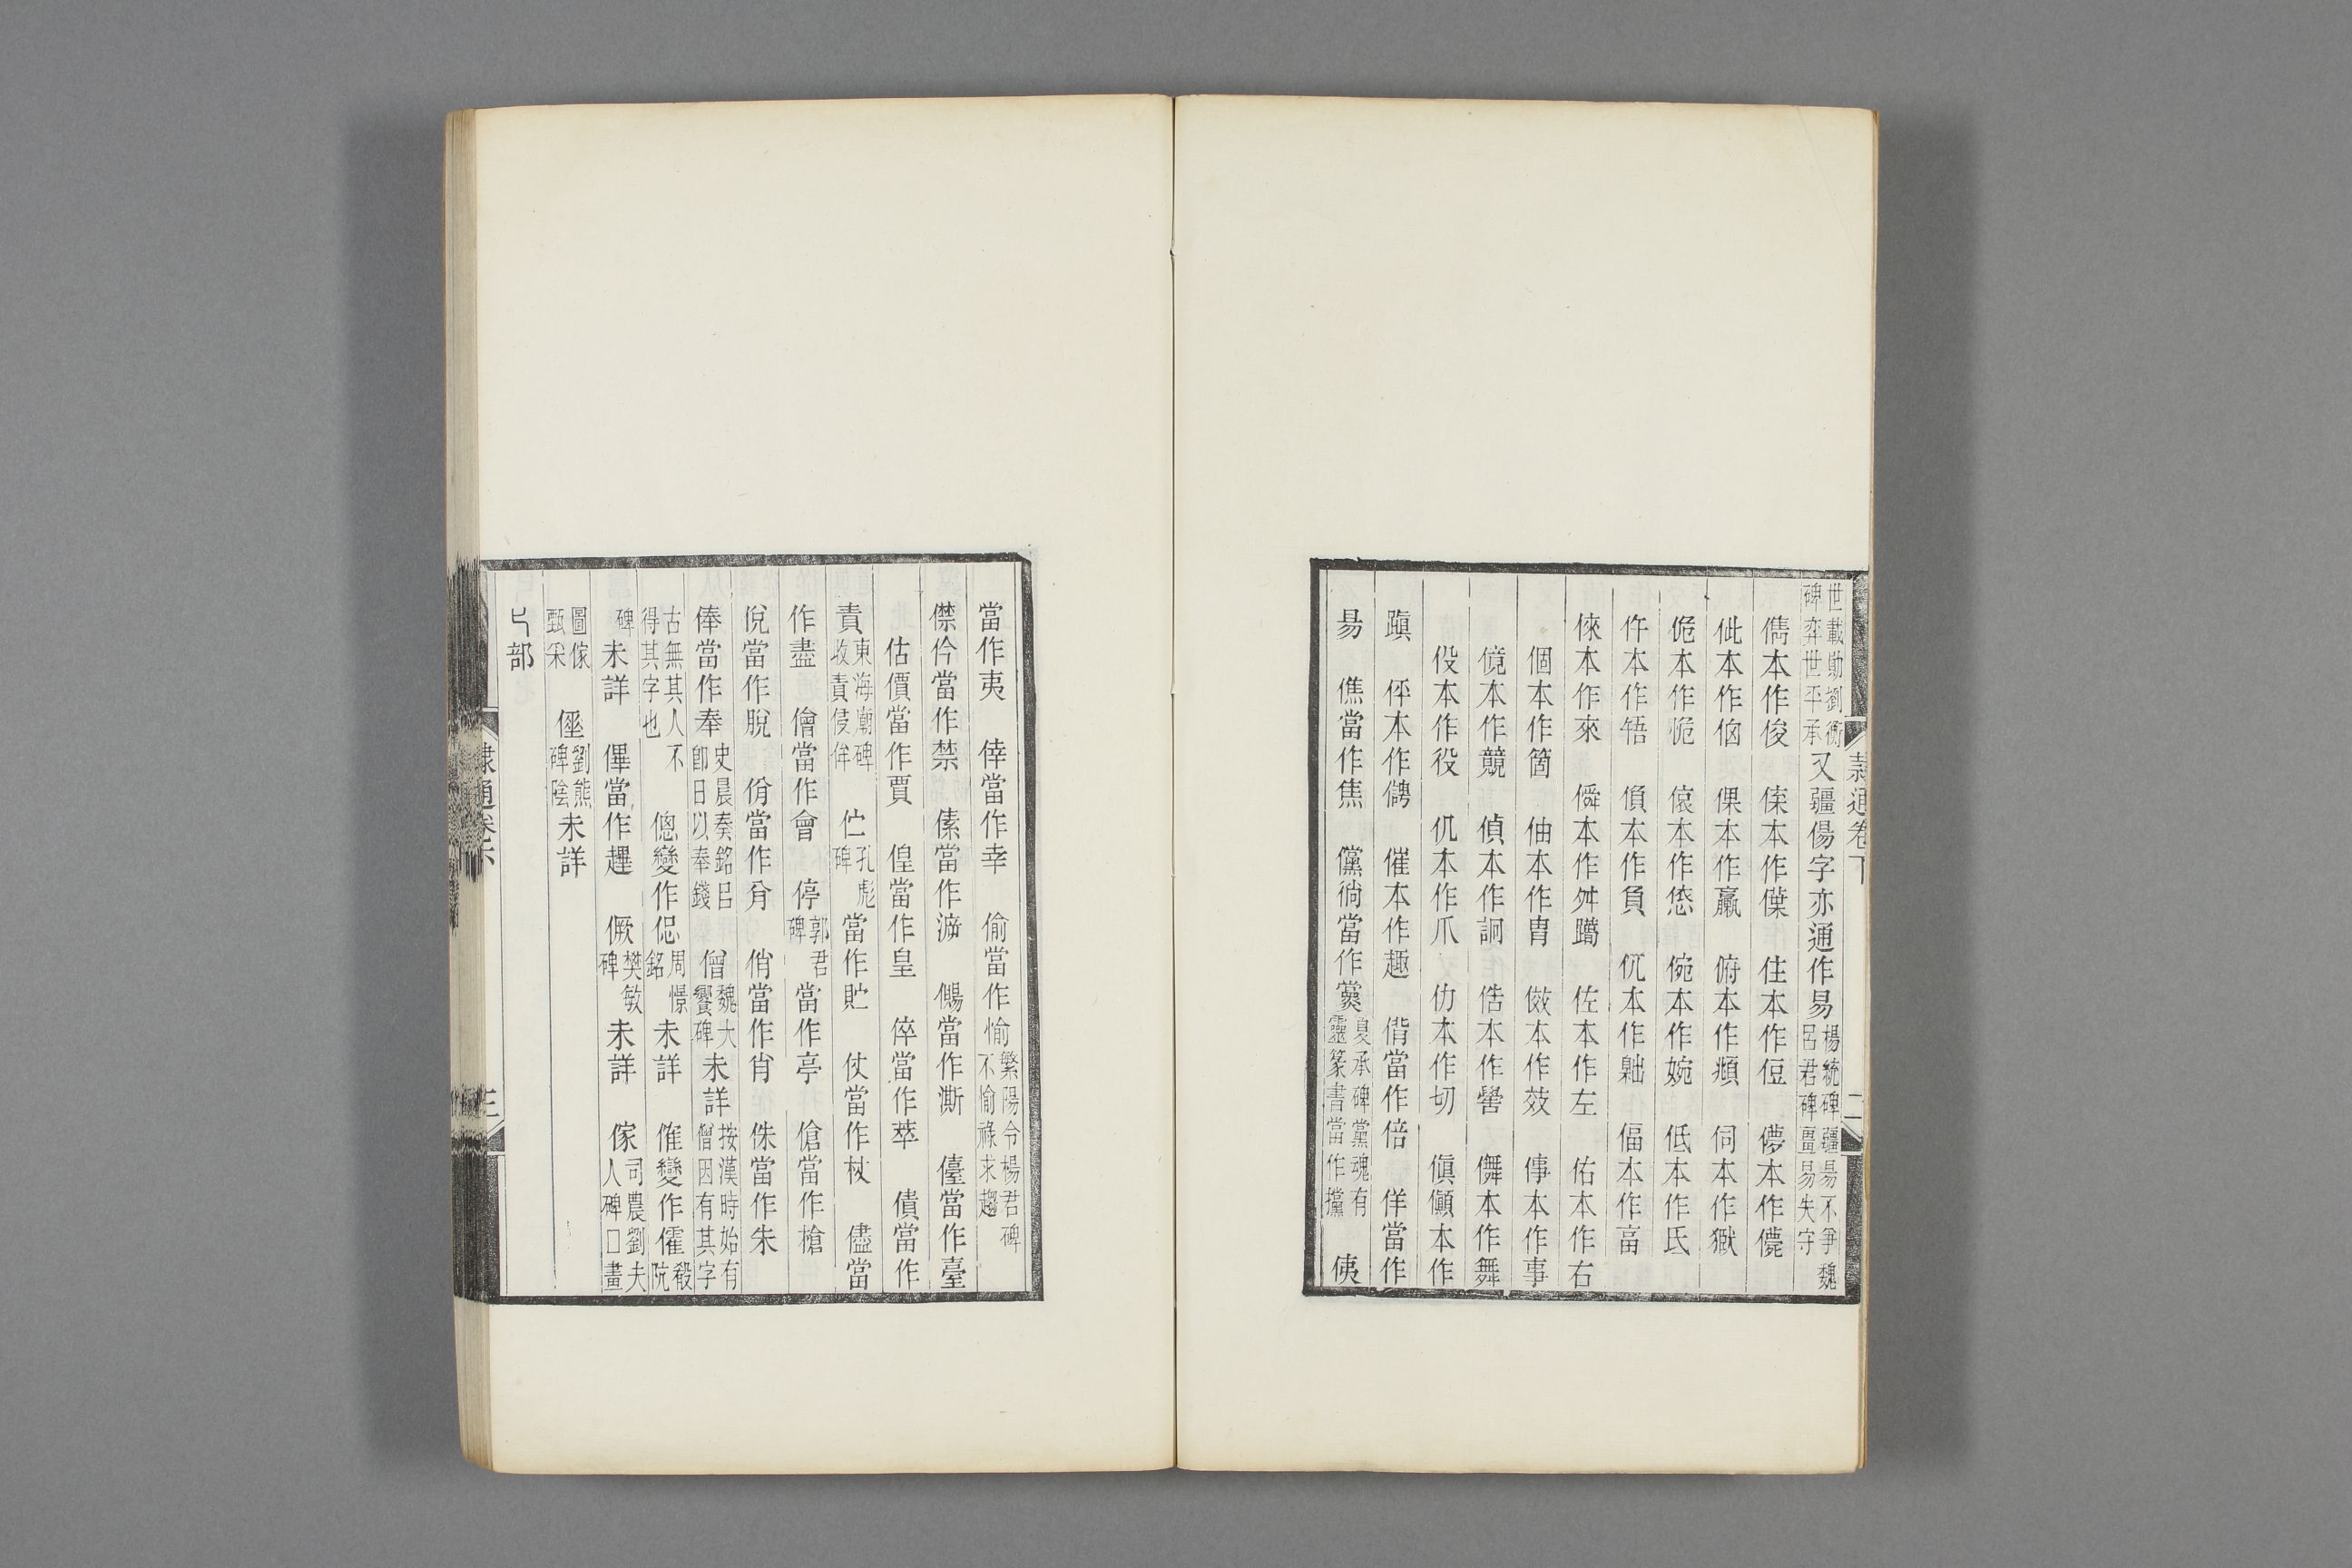 世載勛劉衡碑弈世平承又疆傷字亦通作易楊統碑疆易不爭魏呂君碑畺易失守
儁本作俊　傣本作僕　住本作侸　儚本作儚
仳本作㑳　倮本作臝　俯本作頫　伺本作䫉
佹本作恑　儇本作　倇本作婉　低本作氐
仵本作啎　偩本作負　伉本作　偪本作畐
倈本作來　僢本作舛躢　佐本作左　佑本作右
個本作箇　伷本作胄　傚本作效　倳本作事
傹本作競　偵本作詗　俈本作嚳　儛本作舞
伇本作役　仉本作爪　仂本作切　傎儥本作
蹎　伻本作俜　催本作趣　偝當作倍　佯當作
昜　僬當作焦　儻徜當作黨夏承碑黨魂有靈篆書當作攩　侇
隸通卷下
二
當作夷　倖當作幸　偷當作愉繁陽令楊君碑不愉祿求趨
僸仱當作禁　傃當作　儩當作澌　儓當作臺
估價當作賈　偟當作皇　倅當作萃　債當作
責東海廟碑收責侵侔　伫孔彪碑當作貯　仗當作杖　儘當
作盡　儈當作會　停郭君碑當作亭　傖當作槍
侻當作脫　佾當作㑞　俏當作肖　侏當作朱
俸當作奉史晨奏銘㠯卽日以奉錢　僧魏大饗碑未詳按漢時始有僧因有其字
古無其人不得其字也　傯變作偬周憬銘未詳　傕變作㒋殽阬
碑未詳　㒓當作趩　僟樊敏碑未詳　傢司農劉夫人碑□畫
圖傢甄采　俹劉熊碑陰未詳
匕部
隸通卷下
三